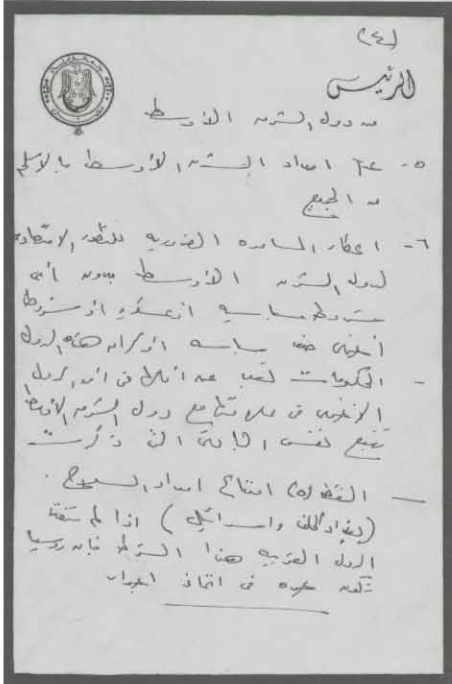 (٢٤)
الرئيس
من دول الشرق الأوسط
٥- عدم امداد الشرق الأوسط بالاسلحة
من الجميع
٦- اعطاء المساعده الضروريه للتطور الاقتصادى
لدول الشرق الأوسط بدون أى
شروط سياسيه او عسكريه او شروط
أخرى ضد سياسه او كرامه هذه الدول
- الحكومات تعبر عن أملها فى أن الدول
الأخرى فى علاقتها مع دول الشرق الأوسط
تتبع نفس المبادئ التى ذكرت
— النقطه (٥) امتناع امداد السلاح .
(بغداد كحلف واسرائيل) اذا لم تنفذ
الدول الغربيه هذا الشرط فان روسيا
تكون حره فى اتخاذ اجراءات